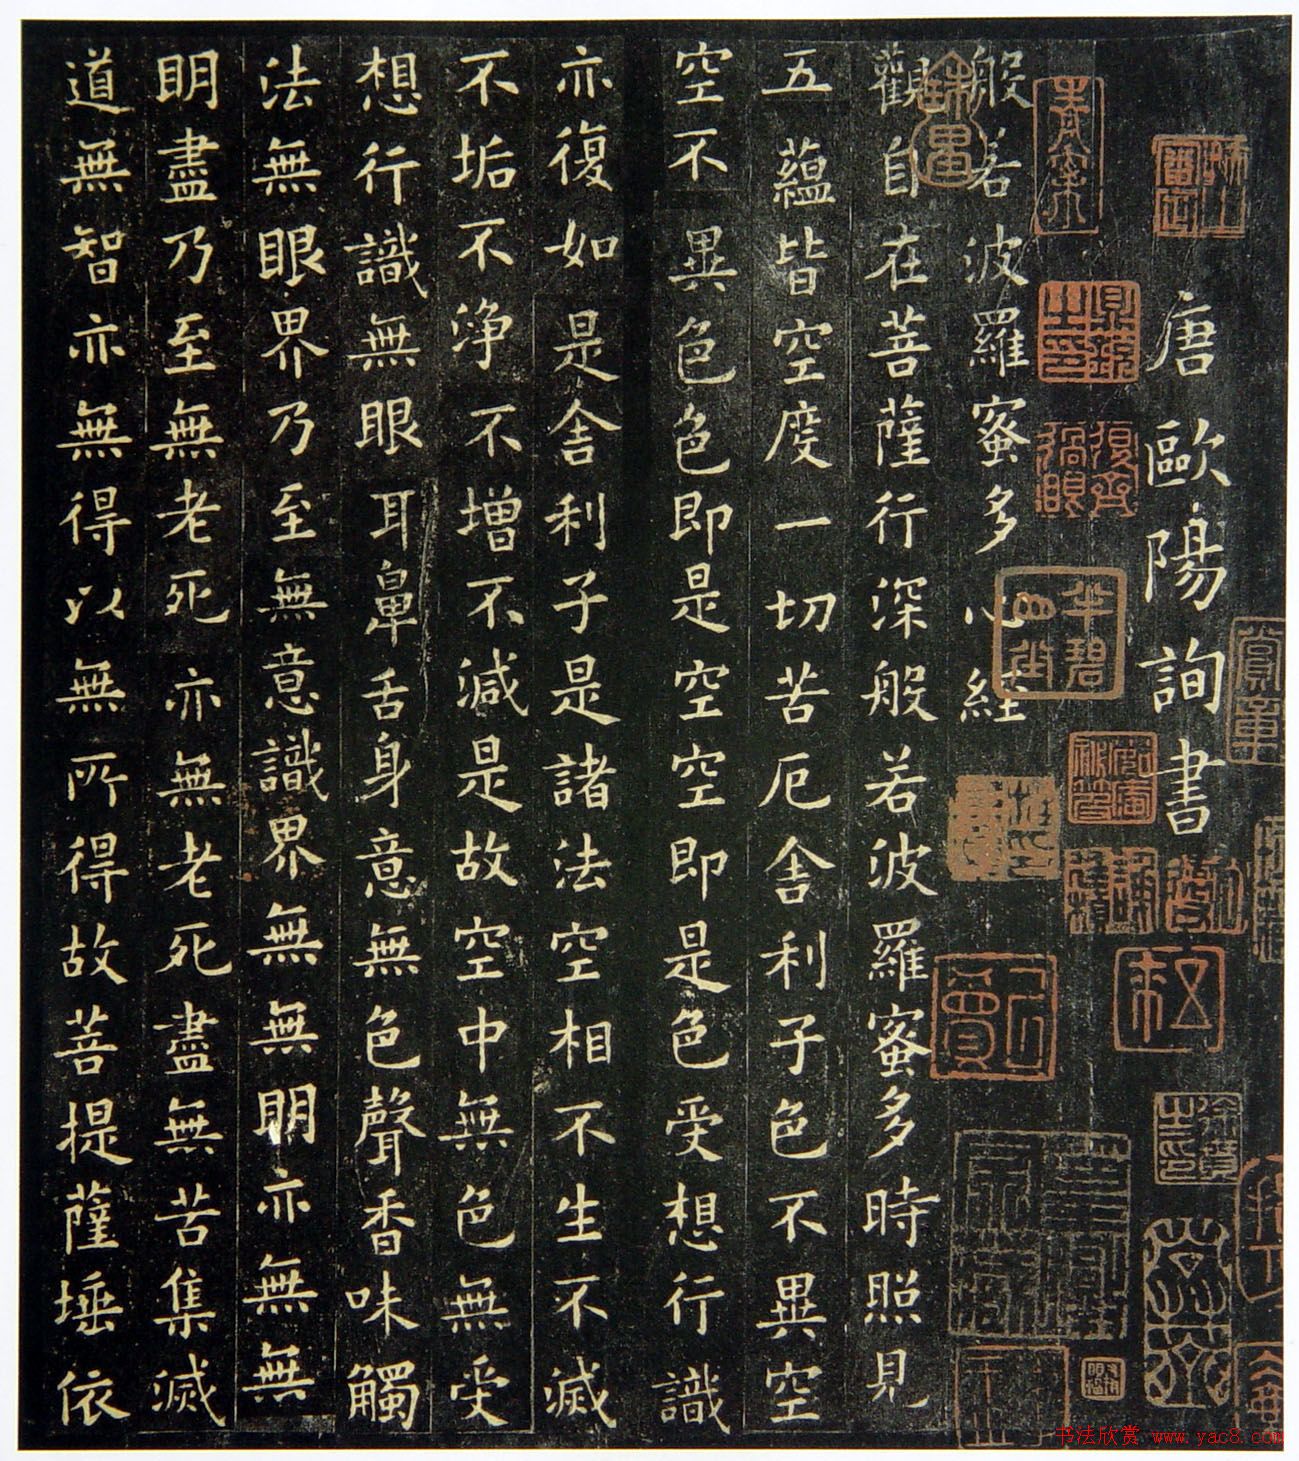 唐歐陽詢書
般若波羅蜜多心經
觀自在菩薩行深般若波羅蜜多時照見
五蘊皆空度一切苦厄舍利子色不異空
空不異色色即是空空即是色受想行識
亦復如是舍利子是諸法空相不生不滅
不垢不淨不增不減是故空中無色無受
想行識無眼耳鼻舌身意無色聲香味觸
法無眼界乃至無意識界無無明亦無無
明盡乃至無老死亦無老死盡無苦集滅
道無智亦無得以無所得故菩提薩埵依
书法欣赏 www.yac8.com